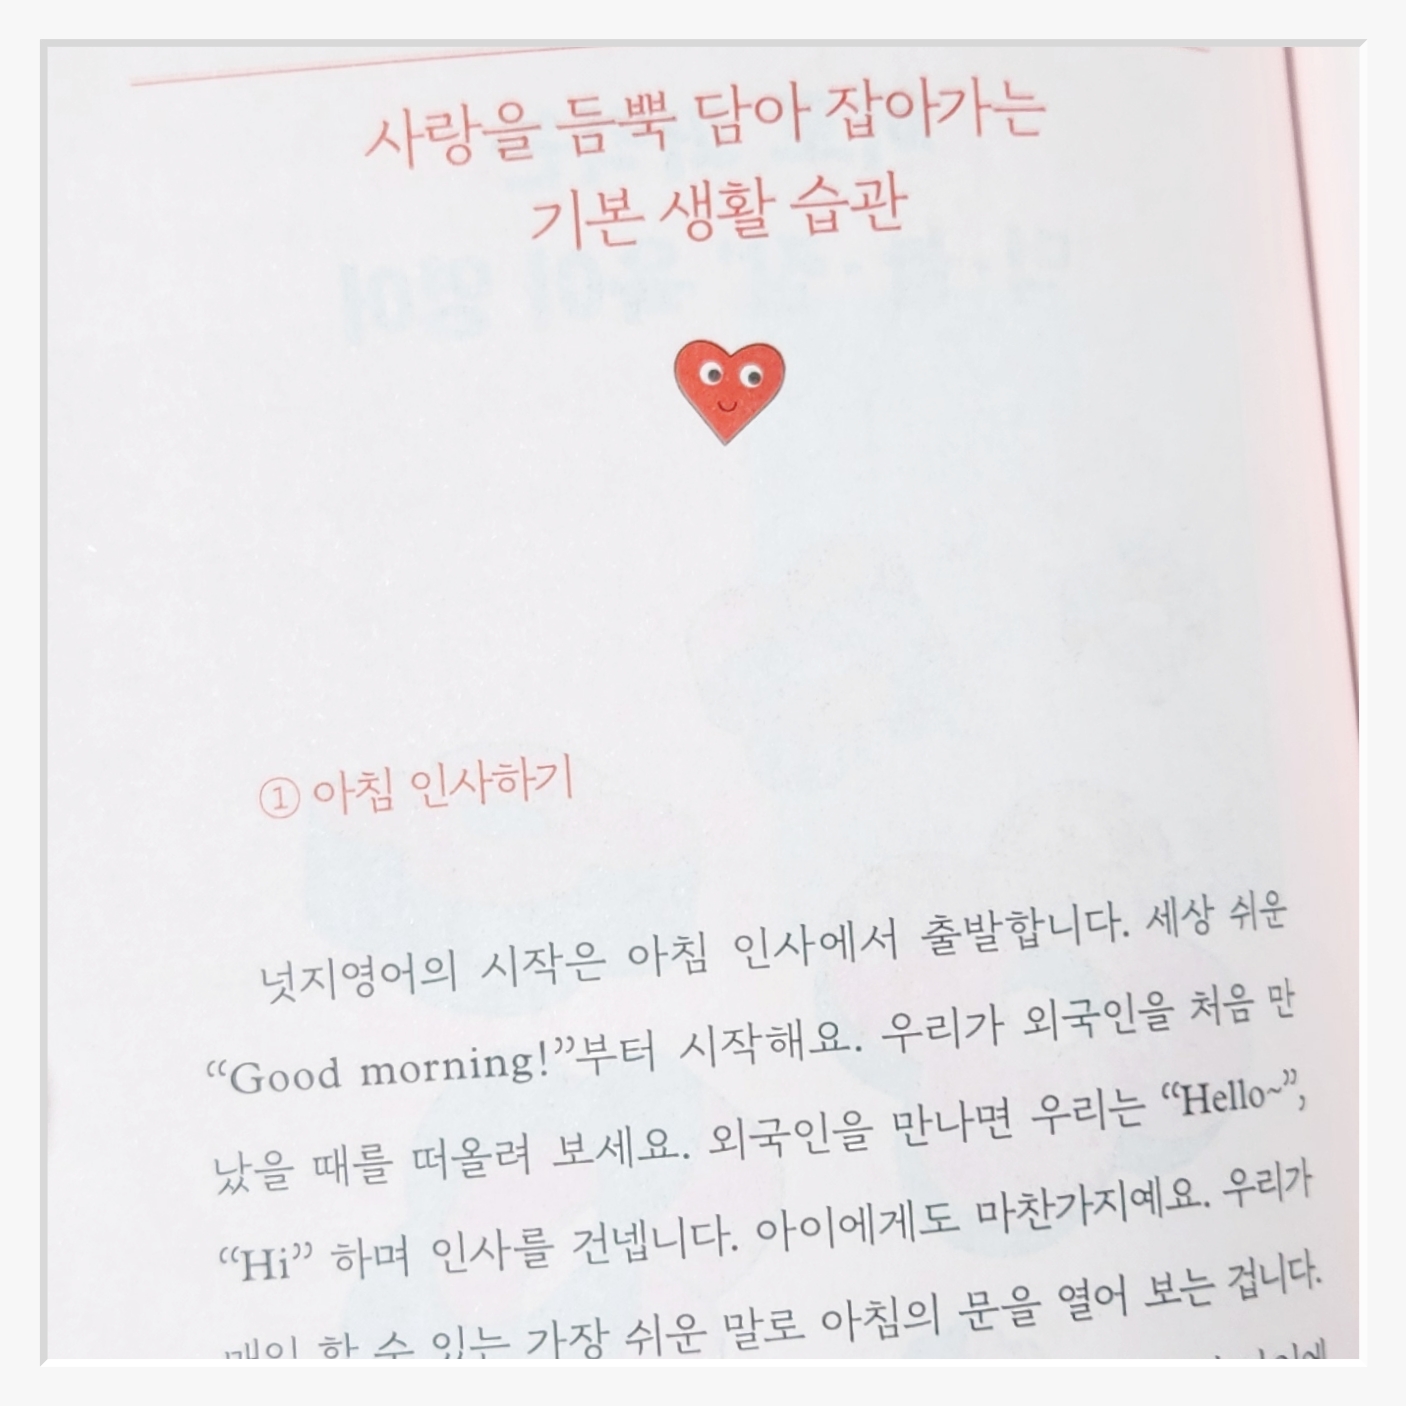 사랑을 듬뿍 담아 잡아가는
기본 생활 습관
① 아침 인사하기
넛지영어의 시작은 아침 인사에서 출발합니다. 세상 쉬운
“Good morning!”부터 시작해요. 우리가 외국인을 처음 만
났을 때를 떠올려 보세요. 외국인을 만나면 우리는 “Hello~”,
“Hi” 하며 인사를 건넵니다. 아이에게도 마찬가지예요. 우리가
매일 할 수 있는 가장 쉬운 말로 아침의 문을 열어 보는 겁니다.